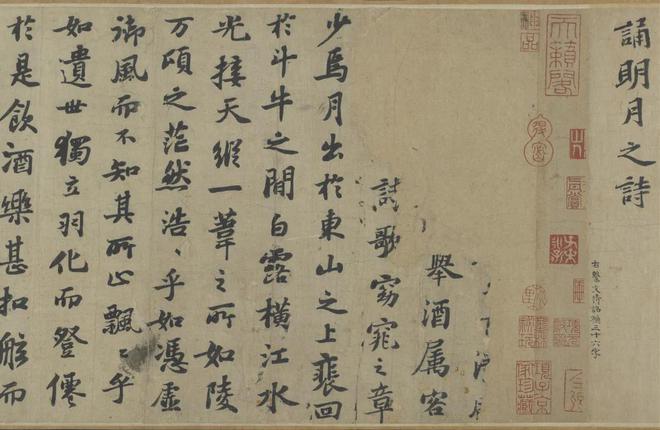 誦明月之詩
右繫文待詔補三十六字
天籟閣
項子京家珍藏
舉酒属客
詩歌窈窕之章
少焉月出於東山之上裴回
於斗牛之間白露橫江水
光接天縱一葦之所如陵
万頃之茫然浩〻乎如憑虛
御風而不知其所止飄〻乎
如遺世獨立羽化而登僊
於是飲酒樂甚扣舷而